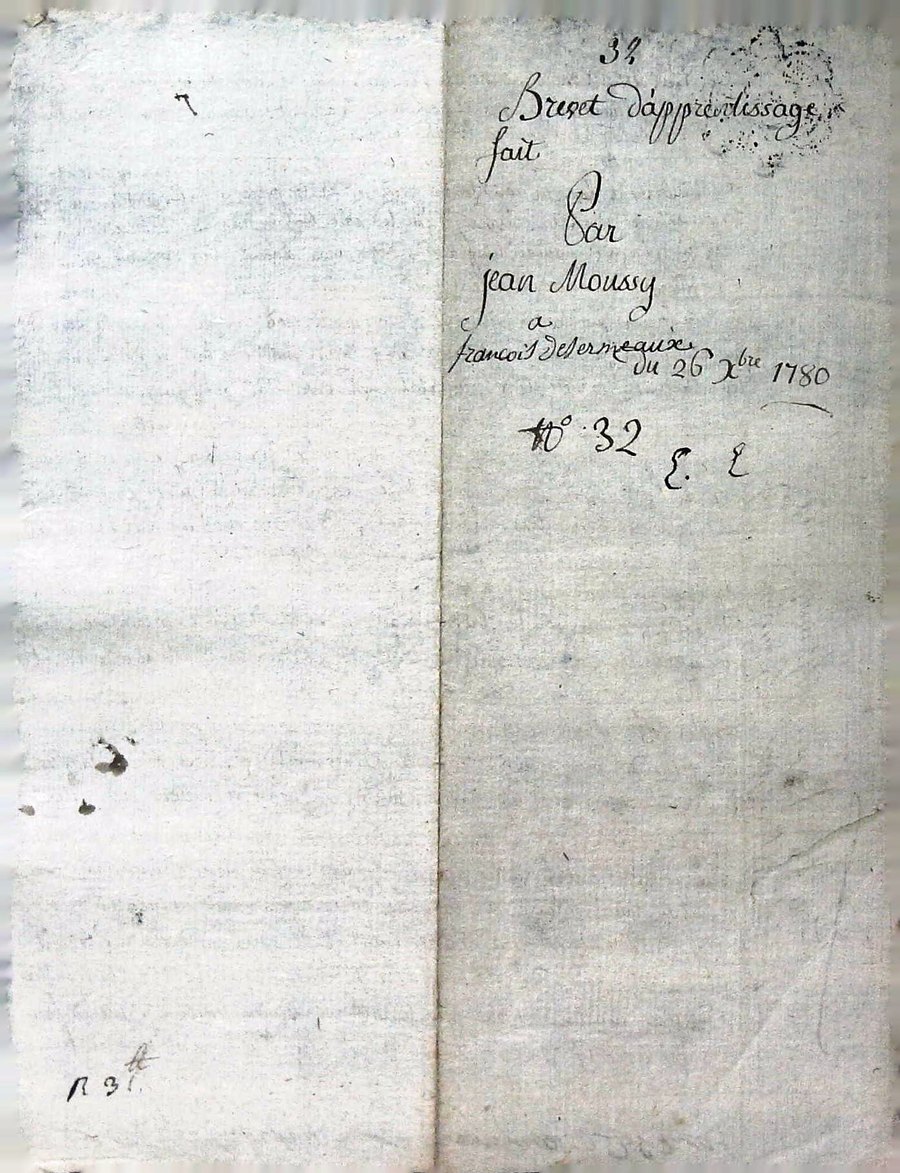 32
Brevet d'apprentissage
fait
Par
jean Moussy
a
francois Desermeaux
du 26 Xbre 1780
N° 32
R 3tt